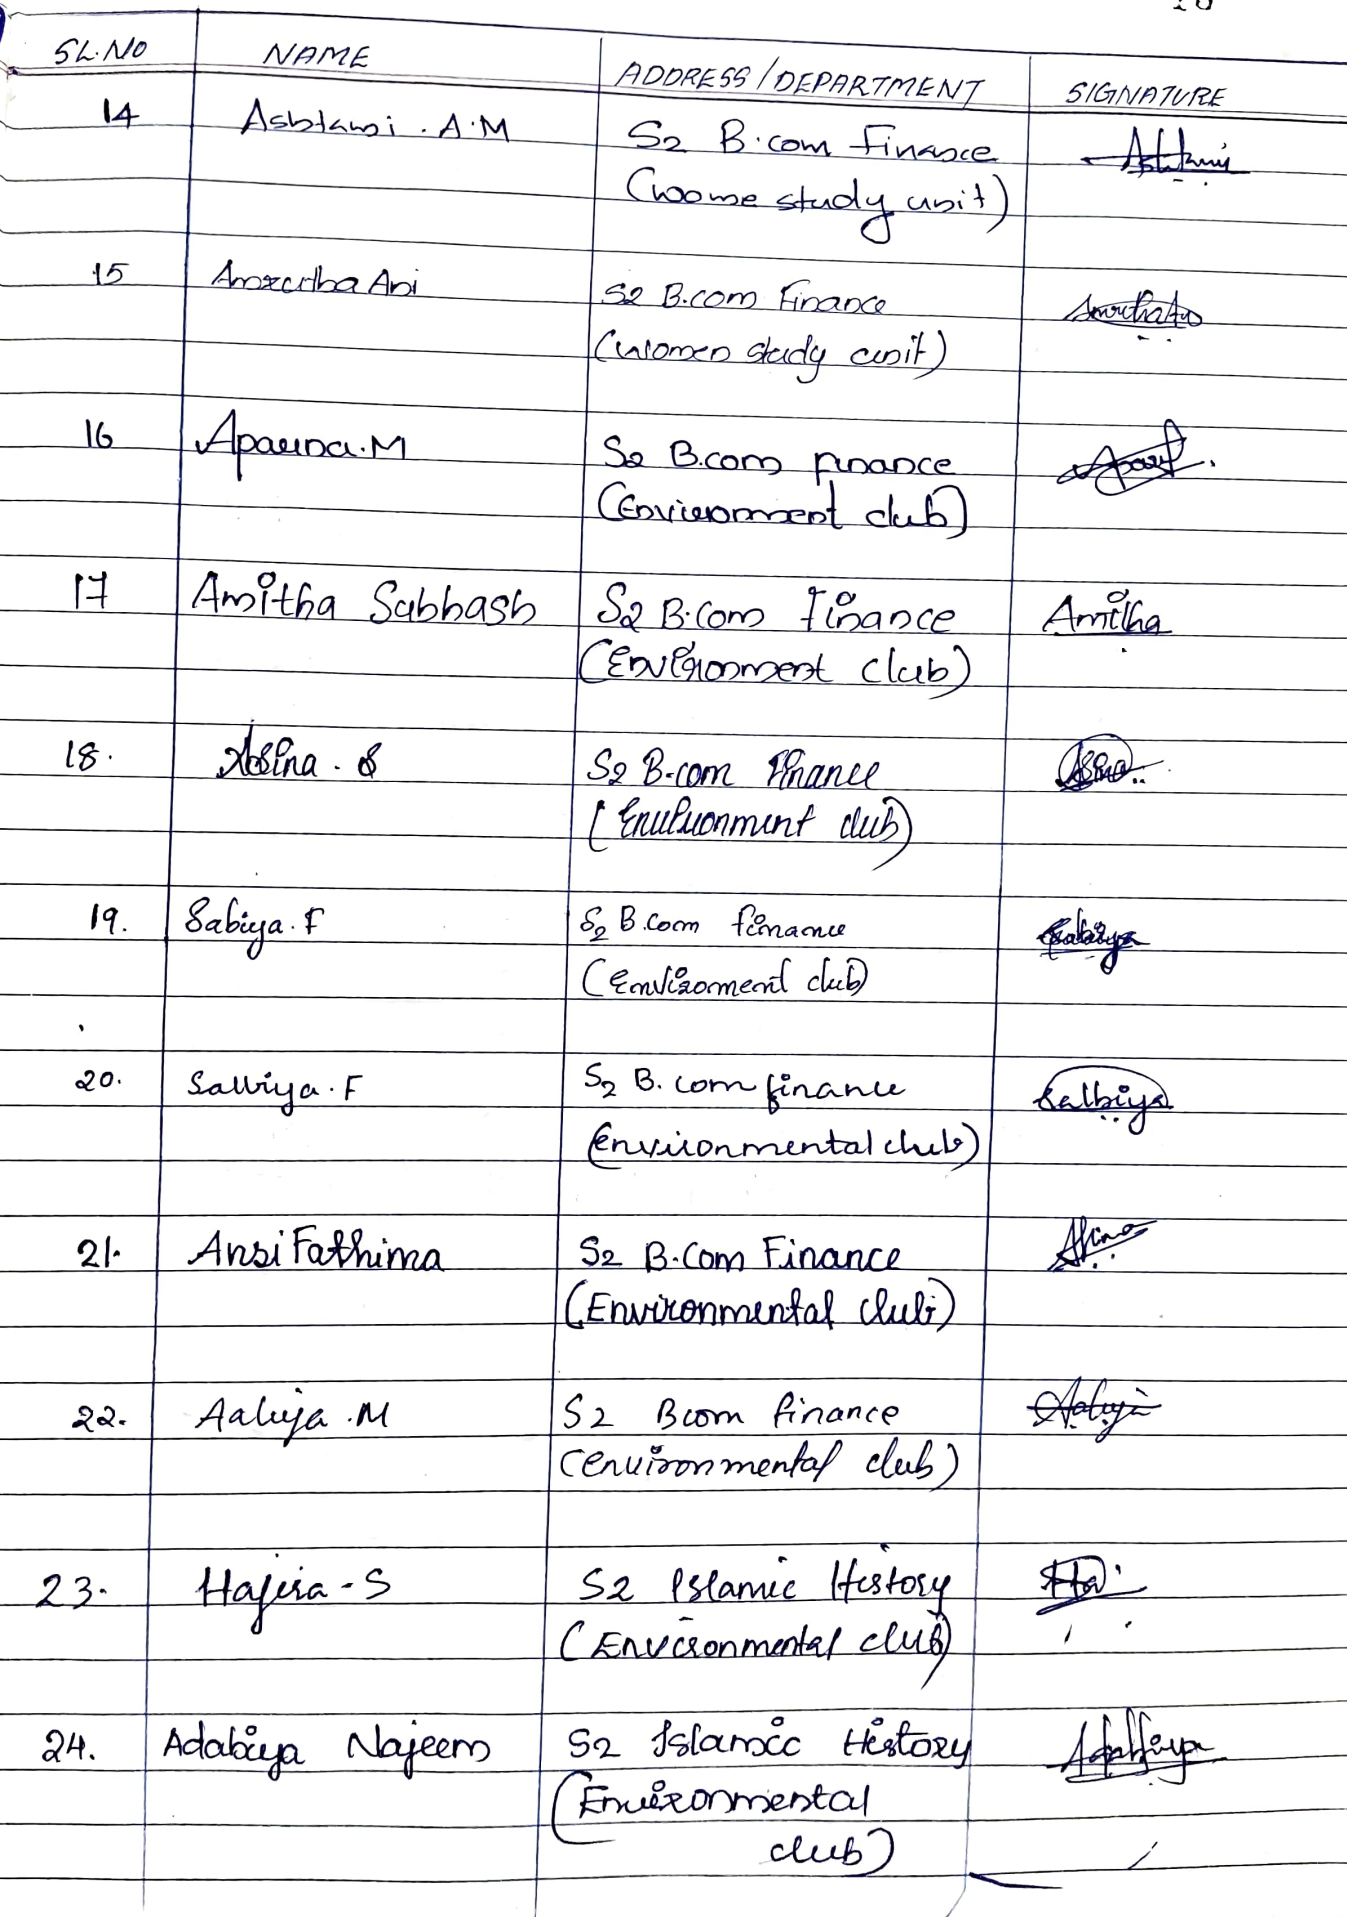 SL.NO NAME ADDRESS/DEPARTMENT SIGNATURE
14 Ashtami . A.M S2 B.com Finance
(woome study unit)
15 Amrutha Ani S2 B.com Finance
(women study unit)
16 Aparna.M S2 B.com finance
(Environment club)
17 Amitha Subhash S2 B.Com Finance Amitha
(Environment club)
18. Asina . S S2 B.com Finance
(Environment club)
19. Sabiya. F S2 B.com finance Sabiya
(Environment club)
20. Salbiya. F S2 B. com finance Salbiya
(environmental club)
21. Ansi Fathima S2 B.Com Finance
(Environmental club)
22. Aaluja .M S2 Bcom finance
(environmental club)
23. Hajira - S S2 Islamic History
(Environmental club)
24. Adabiya Najeem S2 Islamic History
(Environmental
club)